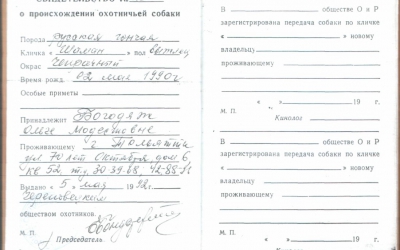 о происхождении охотничьей собаки
Порода русская гончая
Кличка «Шаман» пол
Окрас чепрачный
Время рожд. 02 мая 1990 г
Особые приметы
Принадлежит
Ольге Модестовне
Проживающему г. Тольятти
ул 70 лет Октября дом 6
кв 52, т. 30 39 68,
Выдано «5» мая 1992 г.
обществом охотников.
М. П.
Председатель
В обществе О и Р
зарегистрирована передача собаки по кличке
« » новому
владельцу
проживающему
« » 19 г.
М. П.
Кинолог
В обществе О и Р
зарегистрирована передача собаки по кличке
« » новому
владельцу
проживающему
« » 19 г.
М. П.
Кинолог